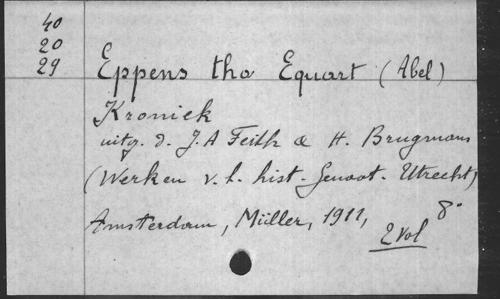 40
20
29
Eppens tho Equart (Abel)
Kroniek
uitg. d. J.A Feith & H. Brugmans
(Werken v. h. hist. Genoot. Utrecht)
Amsterdam, Müller, 1911,
8°
2 Vol